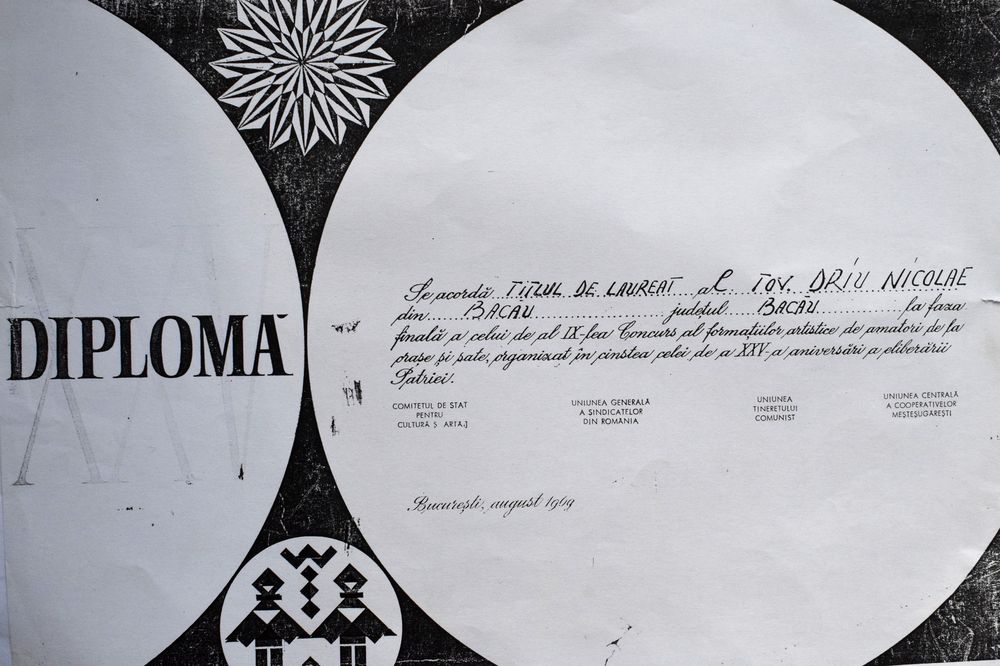 XXV
DIPLOMĂ
Se acordă TITLUL DE LAUREAT al TOV. DRIU NICOLAE
din BACĂU judeţul BACĂU la faza
finală a celui de al IX-lea Concurs al formaţiilor artistice de amatori de la
oraşe şi sate, organizat în cinstea celei de a XXV-a aniversări a eliberării
Patriei.
COMITETUL DE STAT
PENTRU
CULTURĂ Ş ARTĂ
UNIUNEA GENERALĂ
A SINDICATELOR
DIN ROMÂNIA
UNIUNEA
TINERETULUI
COMUNIST
UNIUNEA CENTRALĂ
A COOPERATIVELOR
MEŞTEŞUGĂREŞTI
Bucureşti, august 1969